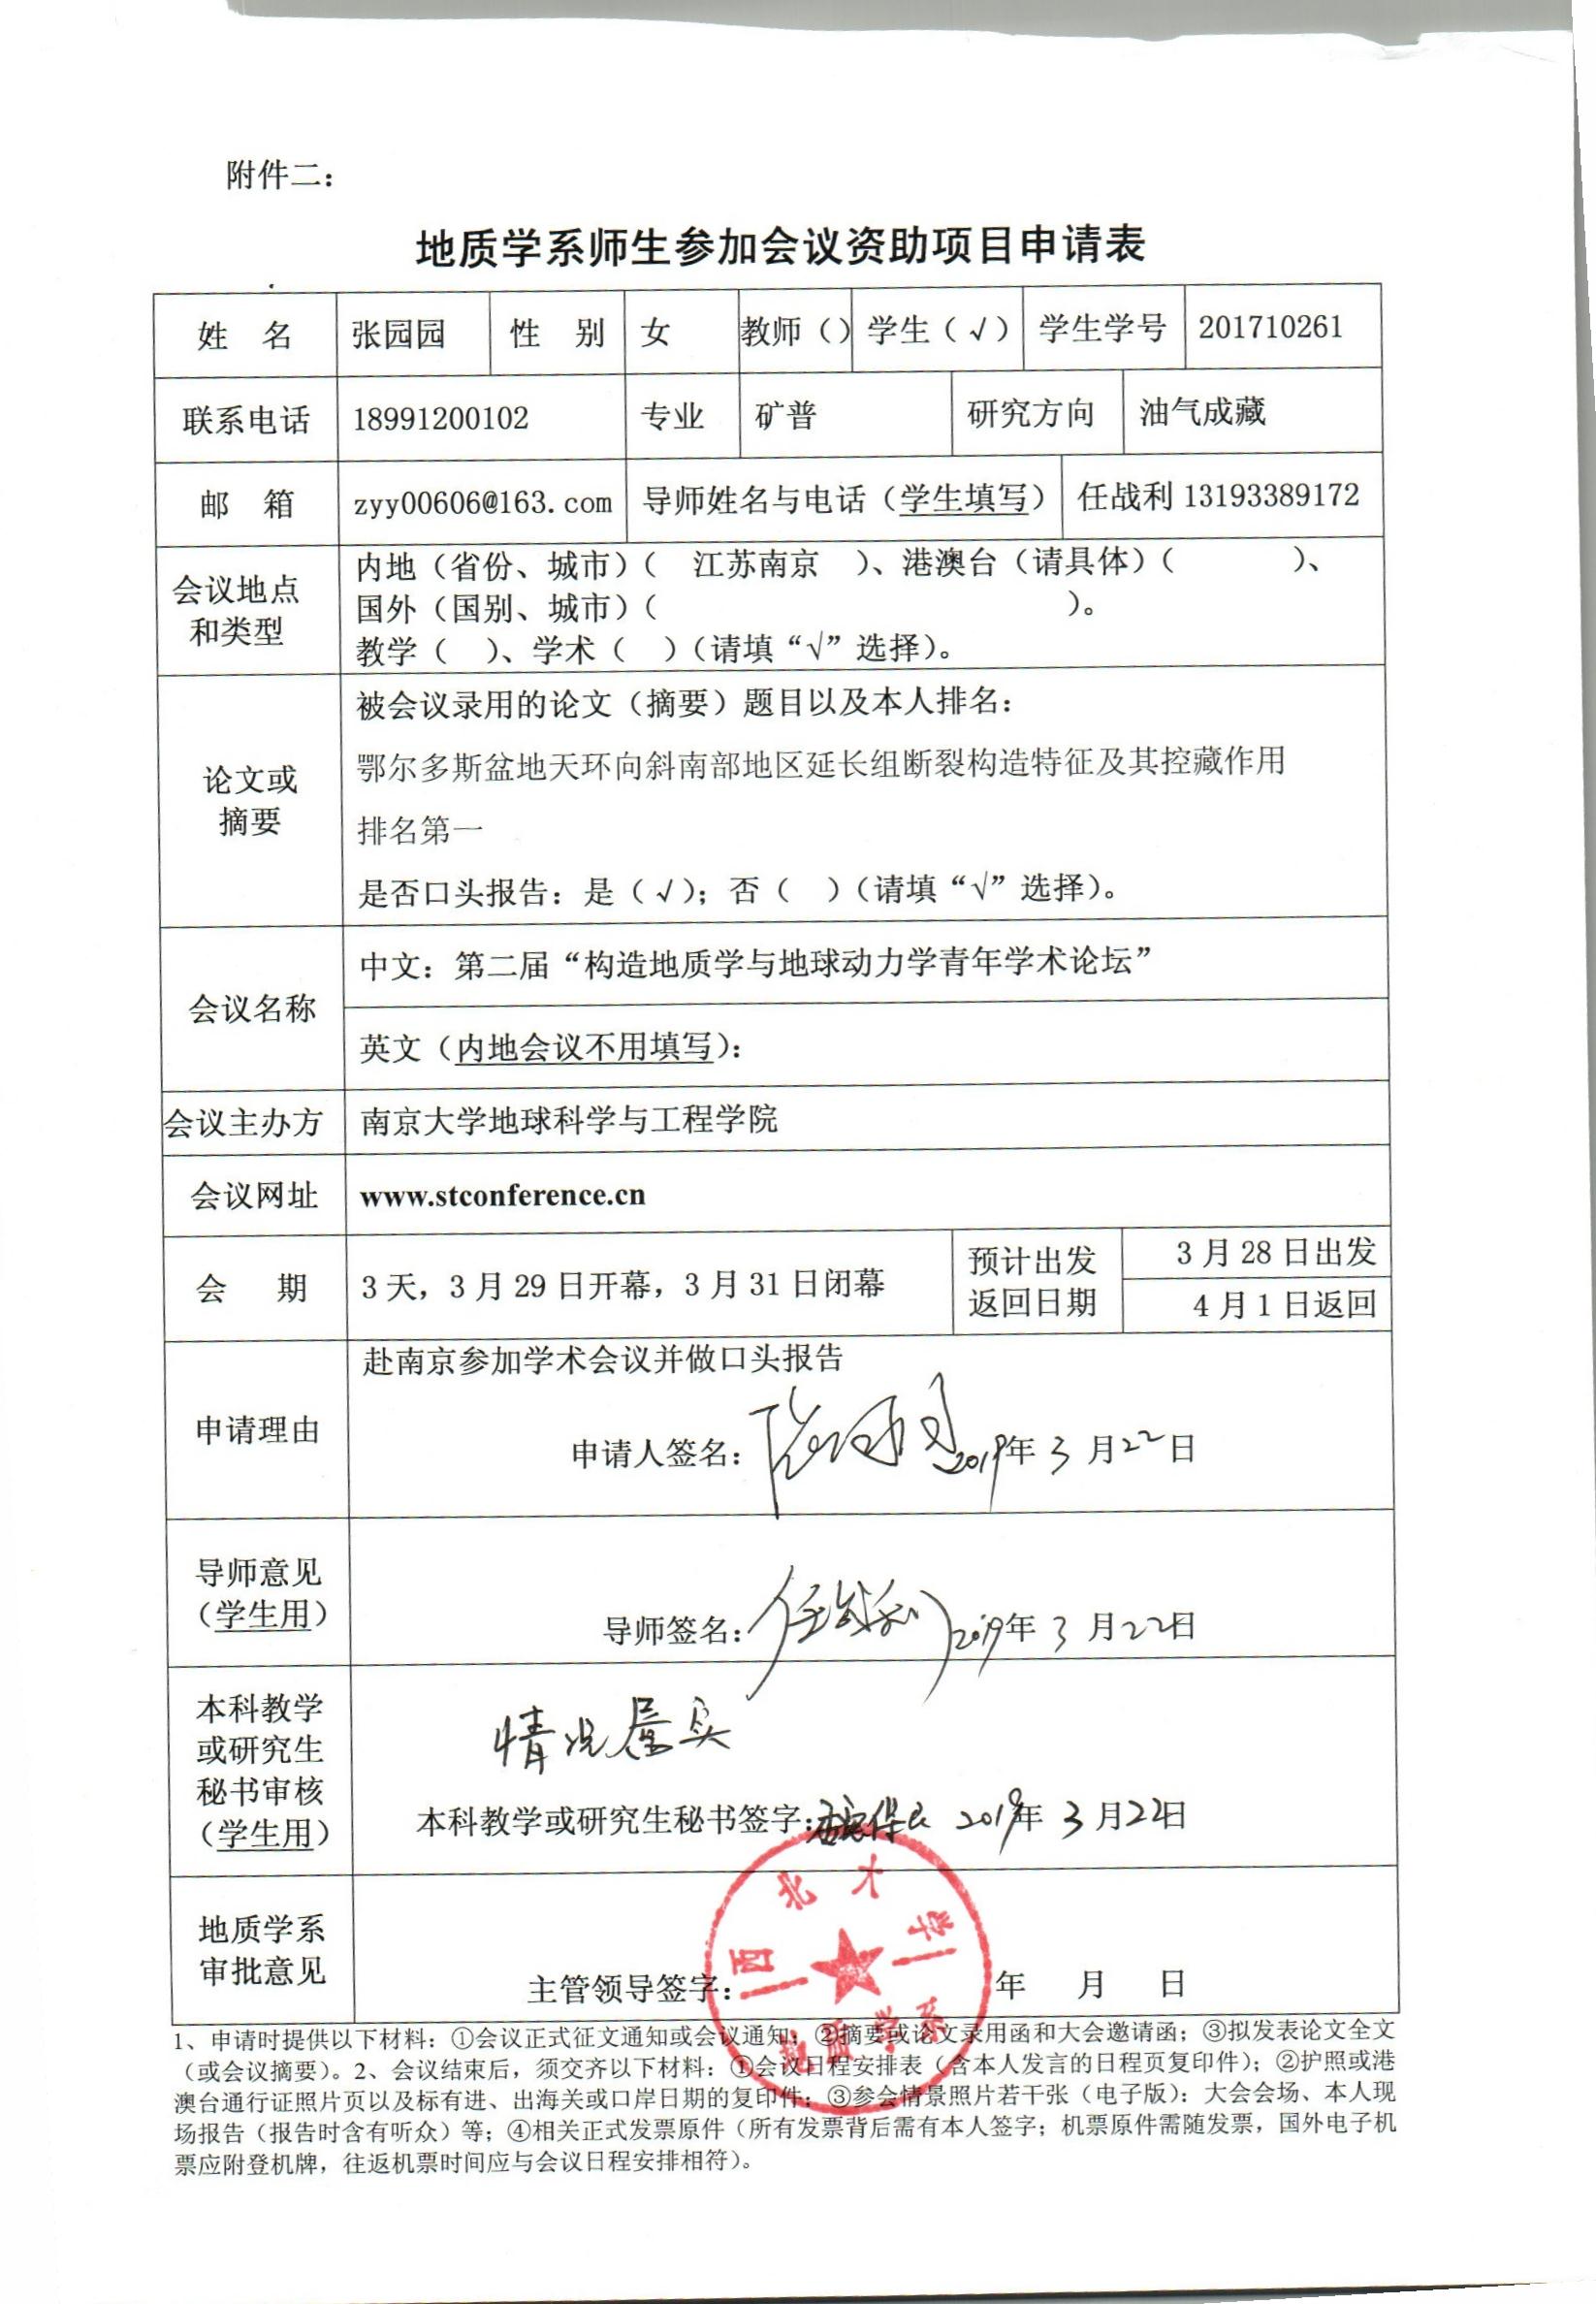 附件二：
地质学系师生参加会议资助项目申请表
姓 名 张园园 性 别 女 教师（） 学生（√） 学生学号 201710261
联系电话 18991200102 专业 矿普 研究方向 油气成藏
邮 箱 zyy00606@163.com 导师姓名与电话（学生填写） 任战利 13193389172
会议地点
和类型
内地（省份、城市）（ 江苏南京 ）、港澳台（请具体）（ ）、
国外（国别、城市）（ ）。
教学（ ）、学术（ ）（请填“√”选择）。
论文或
摘要
被会议录用的论文（摘要）题目以及本人排名：
鄂尔多斯盆地天环向斜南部地区延长组断裂构造特征及其控藏作用
排名第一
是否口头报告：是（√）；否（ ）（请填“√”选择）。
会议名称
中文：第二届“构造地质学与地球动力学青年学术论坛”
英文（内地会议不用填写）：
会议主办方 南京大学地球科学与工程学院
会议网址 www.stconference.cn
会 期 3天，3月29日开幕，3月31日闭幕
预计出发
返回日期
3月28日出发
4月1日返回
申请理由
赴南京参加学术会议并做口头报告
申请人签名： 2019年 3 月 22 日
导师意见
（学生用）
导师签名：任战利 2019年 3 月 22日
本科教学
或研究生
秘书审核
（学生用）
情况属实
本科教学或研究生秘书签字： 2019年 3 月 22日
地质学系
审批意见
主管领导签字： 年 月 日
西北大学
地质学系
1、申请时提供以下材料：①会议正式征文通知或会议通知；②摘要或论文录用函和大会邀请函；③拟发表论文全文
（或会议摘要）。2、会议结束后，须交齐以下材料：①会议日程安排表（含本人发言的日程页复印件）；②护照或港
澳台通行证照片页以及标有进、出海关或口岸日期的复印件；③参会情景照片若干张（电子版）：大会会场、本人现
场报告（报告时含有听众）等；④相关正式发票原件（所有发票背后需有本人签字；机票原件需随发票，国外电子机
票应附登机牌，往返机票时间应与会议日程安排相符）。